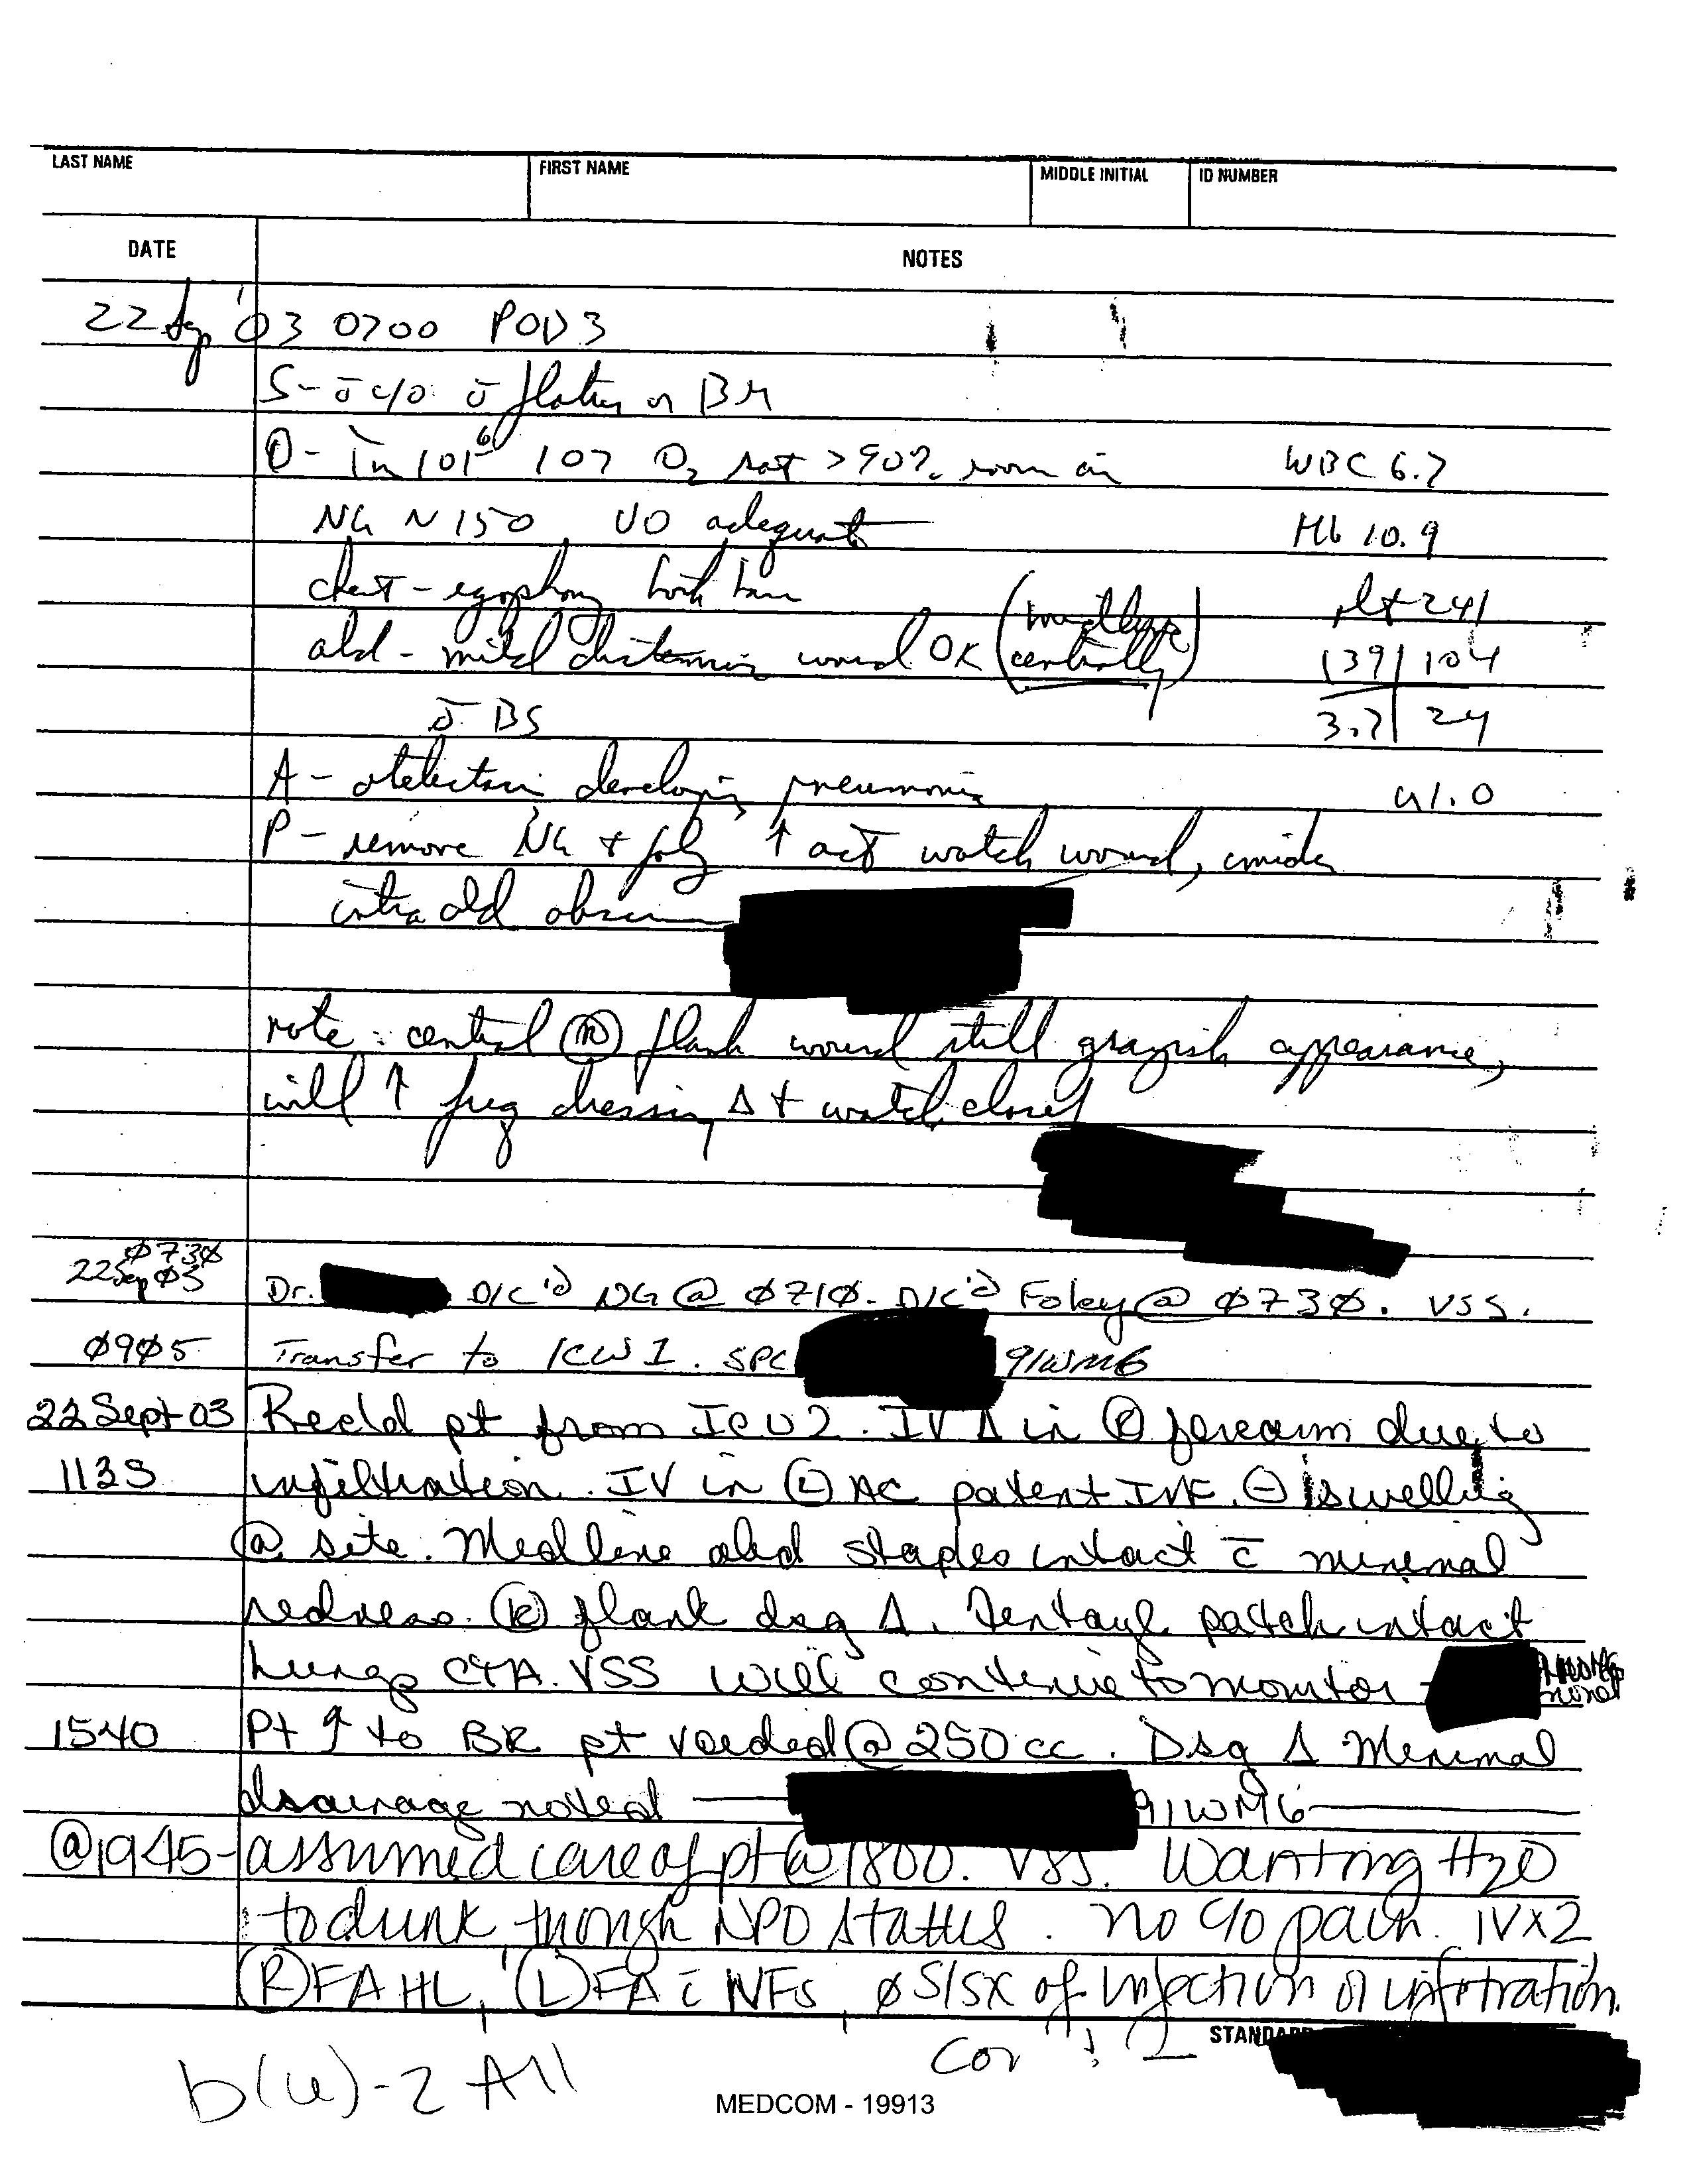 LAST NAME FIRST NAME MIDDLE INITIAL ID NUMBER
DATE NOTES
22 Sep '03 0700 POD3
S- ō c/o ō flatus or BM
O- Tm 101⁶ 107 O₂ sat >90% room air WBC 6.7
NG ~150 UO adequate Hb 10.9
chest - egophony both plt 241
abd - mild distension wound OK (midline centrally) 139 | 104
ō BS 3.7 | 24
A - atelectasis developing pneumonia 1.0
P - remove NG + foley ↑ act watch wound,
intra abd
note: central Ⓡ flank wound still grayish appearance,
will ↑ freq dressing Δ + watch closely
Ø73Ø
22 Sep Ø3 Dr. D/C'd NG @ Ø71Ø. D/C'd Foley @ Ø73Ø. VSS.
Ø9Ø5 Transfer to ICW 1. SPC 91WM6
22 Sept 03 Rec'd pt from ICU2. IV Δ in Ⓡ forearm due to
1135 infiltration. IV in Ⓛ AC patent INF. ⊖ swelling
@ site. Midline abd staples intact c̄ minimal
redness. Ⓡ flank dsg Δ. Fentayl patch intact
Lungs CTA. VSS will continue to monitor
1540 Pt ↑ to BR pt voided @ 250 cc. Dsg Δ Minimal
drainage noted 91WM6
@1945- assumed care of pt @ 1800. VSS. Wanting H2O
to drink though NPO status. no c/o pain. IVX2
Ⓡ FA HL, Ⓛ FA c̄ IVFs, ø S/SX of infection or infiltration.
STANDARD
b(6)-2 All
MEDCOM - 19913